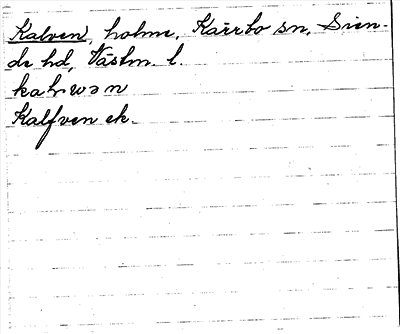 Kalven, holme, Kärrbo sn, Sien-
de hd, Västm. l.
kalvwən
Kalfven ek.